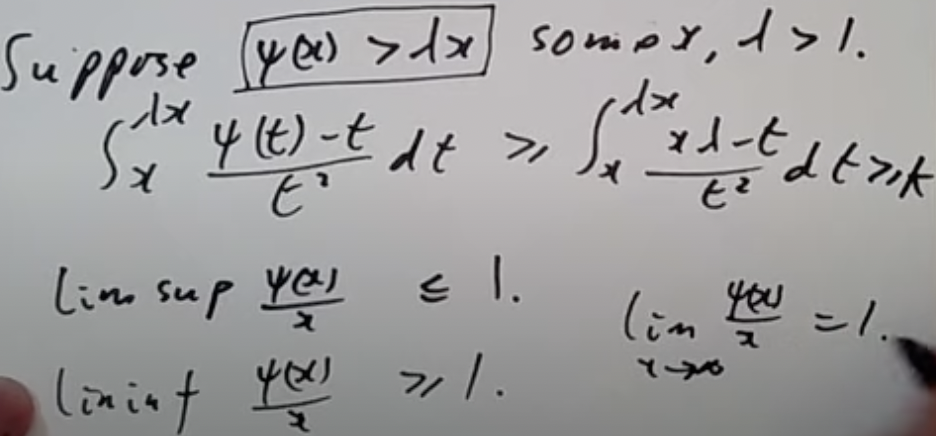 Suppose ψ(x) > λx some x, λ > 1.
∫_x^{λx} (ψ(t) - t)/t² dt ≥ ∫_x^{λx} (xλ - t)/t² dt ≥ k
lim sup ψ(x)/x ≤ 1.
lim_{x→∞} ψ(x)/x = 1.
lim inf ψ(x)/x ≥ 1.